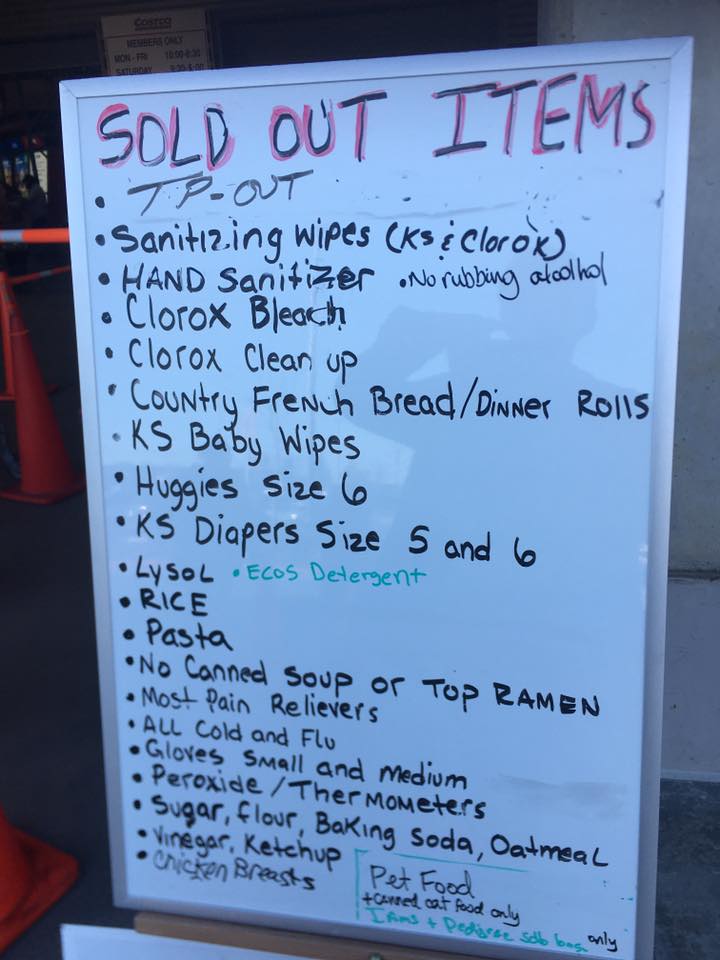 COSTCO
MEMBERS ONLY
MON - FRI 10:00-8:30
SATURDAY
SOLD OUT ITEMS
• TP-OUT
• Sanitizing wipes (KS & Clorox)
• HAND Sanitizer • No rubbing alcolhol
• Clorox Bleach
• Clorox Clean up
• Country French Bread/Dinner Rolls
• KS Baby Wipes
• Huggies Size 6
• KS Diapers Size 5 and 6
• Lysol • Ecos Detergent
• RICE
• Pasta
• No Canned Soup or Top RAMEN
• Most Pain Relievers
• All Cold and Flu
• Gloves small and medium
• Peroxide / Thermometers
• Sugar, flour, Baking Soda, Oatmeal
• Vinegar, Ketchup
• Chicken Breasts
Pet Food
+ canned cat food only
Iams + Pedigree 50lb bag only